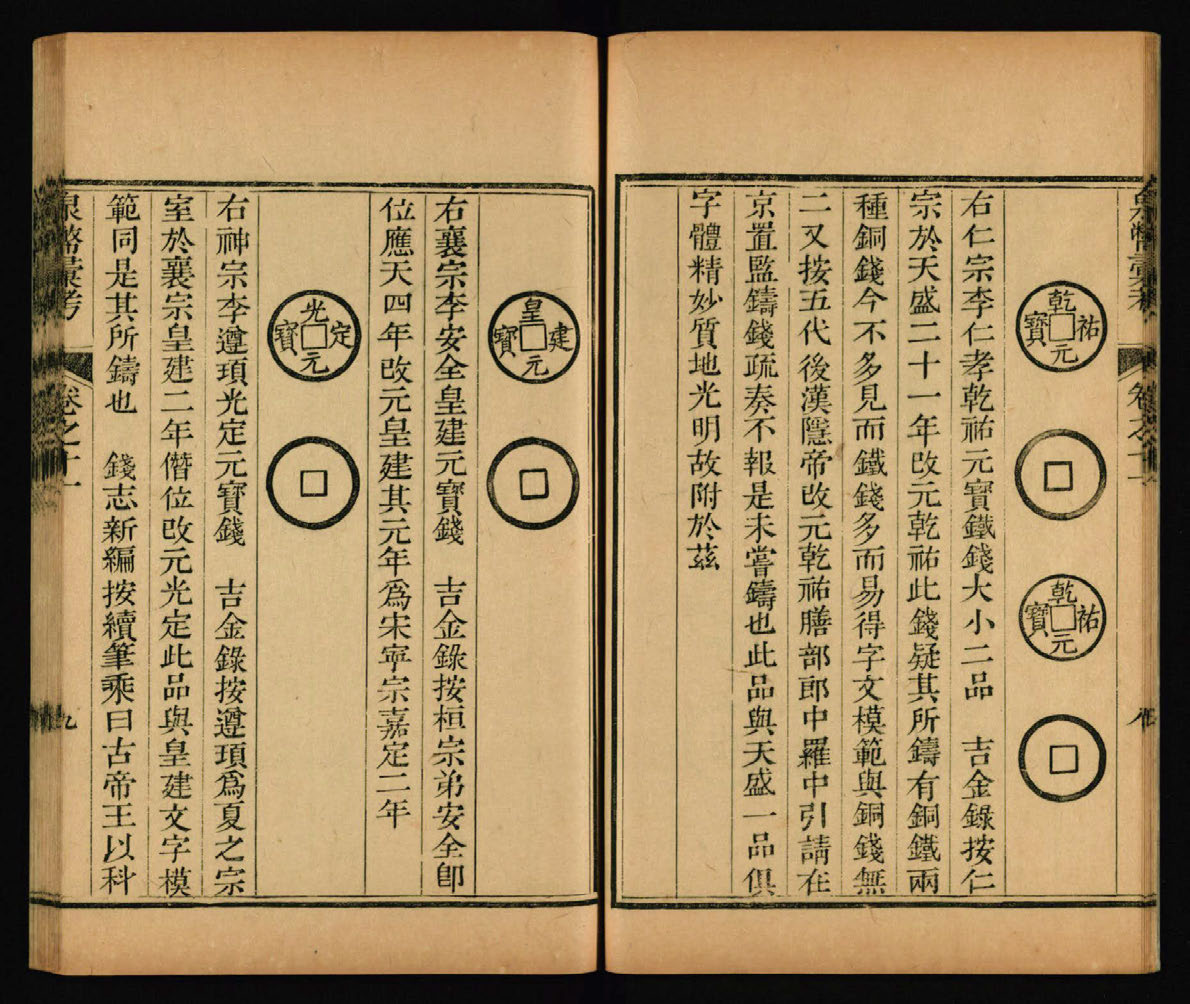 乾祐元寶
乾祐元寶
右仁宗李仁孝乾祐元寶鐵錢大小二品　吉金錄按仁
宗於天盛二十一年改元乾祐此錢疑其所鑄有銅鐵兩
種銅錢今不多見而鐵錢多而易得字文模範與銅錢無
二又按五代後漢隱帝改元乾祐膳部郎中羅中引請在
京置監鑄錢疏奏不報是未嘗鑄也此品與天盛一品俱
字體精妙質地光明故附於茲
皇建元寶
右襄宗李安全皇建元寶錢　吉金錄按桓宗弟安全卽
位應天四年改元皇建其元年爲宋寧宗嘉定二年
光定元寶
右神宗李遵頊光定元寶錢　吉金錄按遵頊爲夏之宗
室於襄宗皇建二年僭位改元光定此品與皇建文字模
範同是其所鑄也　錢志新編按續筆乘曰古帝王以科
泉幣彙考
卷之十一
九